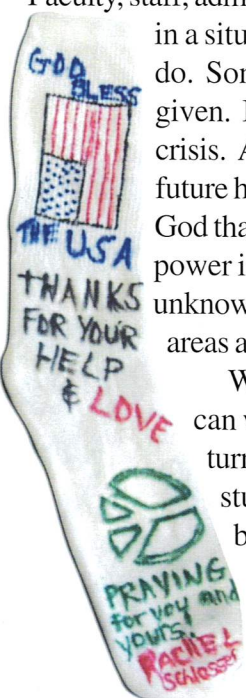 in a situ
do. Son
given. I
crisis. A
future h
God tha
power i
unknow
areas a
W
can v
turn
stu
b
GOD
BLESS
THE USA
THANKS
FOR YOUR
HELP
& LOVE
PRAYING
for you and
yours.
RACHEL
Schlosser